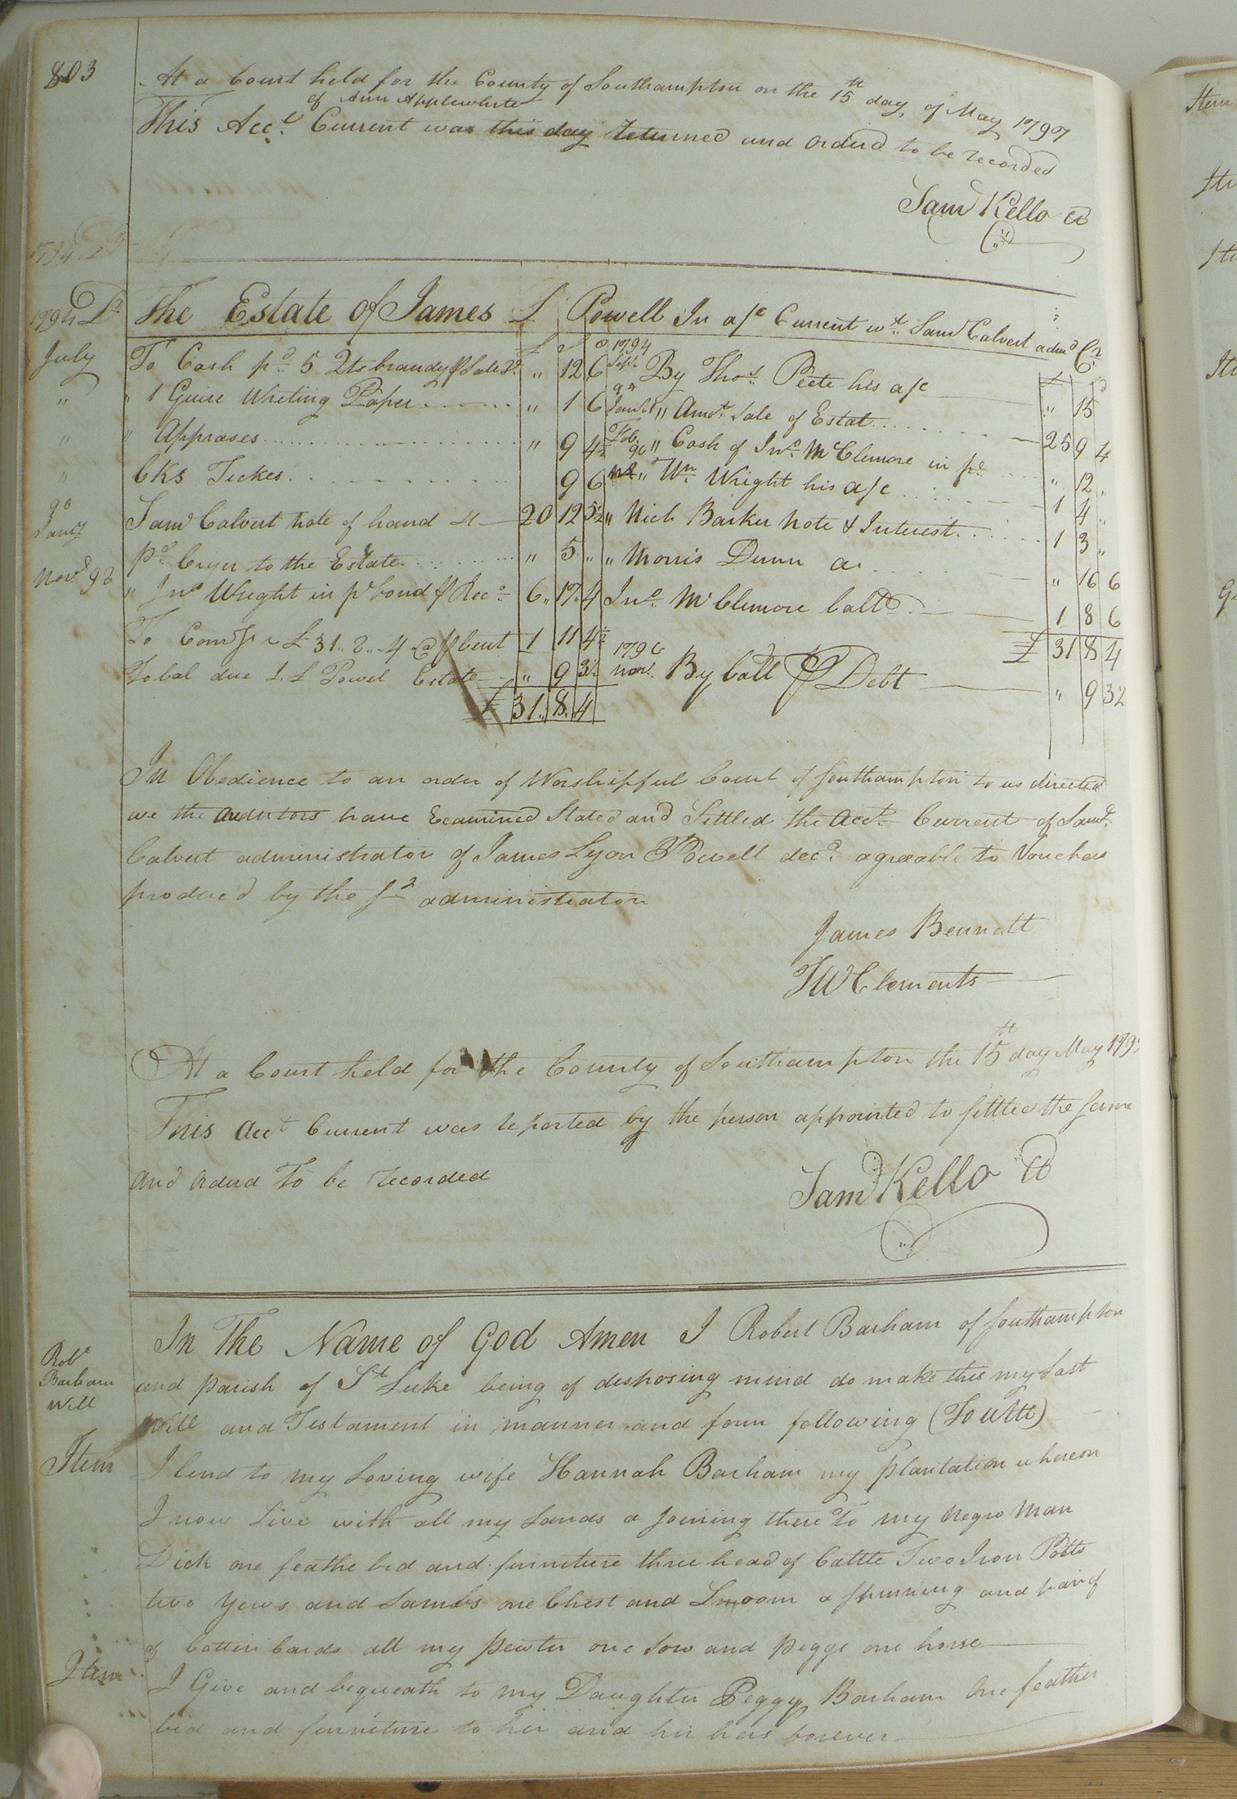 803
At a Court held for the County of Southampton on the 15th day, of May 1797
of Ann Applewhite
This Acct Current was this day returned and Orderd to be recorded
Saml Kello CC
1794 Dr The Estate of James L Powell In a/c Current wt. Saml Calvert admr Cr
July To Cash pd 5 Qts brandy " 12 6
" " 1 Quire Writing Paper " 1 6
" " Apprases " 9 4½
" CKS Tickes 9 6
Jany Saml Calvert note of hand 20 12 5½
pd Cryer to the Estate " 5 "
Novr 96 " Jno Wright in pt bond 6 17 4
To Coms on £31.. 8.. 4 @ 5 pr Cent 1 11 4½
To bal due J. L Powel Estate " 9 3½
£ 31 8 4
1794
By Thos. Peete his a/c " 15
" Amot. Sale of Estat 25 9 4
" Cash of Jno. McClemore in pt " 12 "
" Wm Wright his a/c 1 4 "
" Nich Barker note & Interest 1 3 "
" Morris Dunn a. " 16 6
Jno. McClemore ballo 1 8 6
£ 31 8 4
1796
Novr. By ball pr Debt " 9 3½
In Obedience to an order of Worshipful Court of Southampton to us directed
we the auditors have Examined Stated and Settled the Acct. Current of Saml.
Calvert administrator of James Lyon Powell decd. agreeable to Vouchers
produced by the sd administrator
James Bennett
TW Clements
At a Court held for the County of Southampton the 15th day May 179
This Acct Current was reported by the person appointed to settled the same
And Orderd To be recorded
Saml Kello CC
Robt
Barham
Will
In The Name of God Amen I Robert Barham of Southampton
and parish of St Luke being of desposing mind do make this my Last
Will and Testament in manner and form following (To Witt)
Item I lend to my Loving wife Hannah Barham my plantation whereon
I now Live with all my Lands a joining there to my negro man
Dick one feathe bed and furniture three head of Cattle Two Iron Potts
two Yews and Lambs one Chest and Lmoom a spinning and pair of
of Cotten Cards all my pewter one Sow and piggs one horse
Item I Give and bequeath to my Daughter Peggy Barham One feather
bed and furniture to her and hir heirs forever
Item